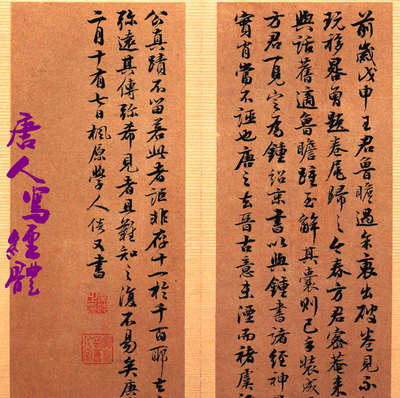 前歲戊申王君魯瞻過余裒出破卷見示
玩移晷曾題卷尾歸之今春方君密菴来
典話舊適魯瞻踵至解其囊則已手裝成
方君一見定為鍾紹京書以與鍾書諸經神
實肖當不誣也唐之去晉古意未湮而褚虞
公真蹟不留若此者詎非存十一於千百耶
弥遠其傳弥希見者且難知之復不易矣庚
二月十有七日楓原學人又書
唐人寫經體